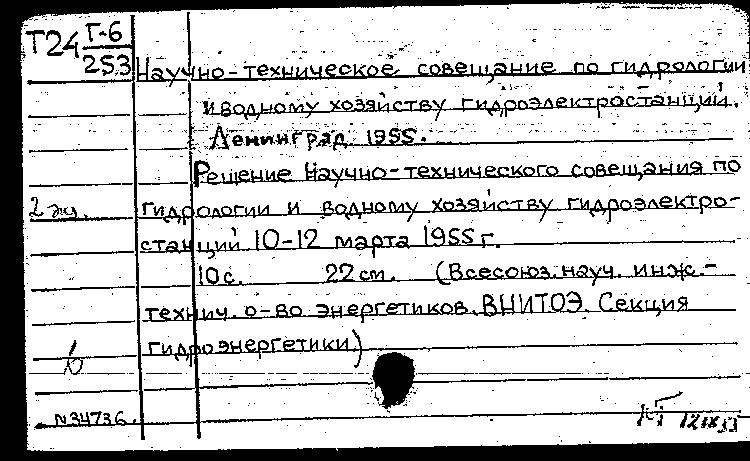 Т24 Г-6
253
Научно-техническое совещание по гидрологии
и водному хозяйству гидроэлектростанций.
Ленинград. 1955.
Решение Научно-технического совещания по
2 экз. гидрологии и водному хозяйству гидроэлектро-
станций 10-12 марта 1955 г.
10 с. 22 см. (Всесоюз. науч. инж.-
технич. о-во энергетиков. ВНИТОЭ. Секция
гидроэнергетики)
N34736.